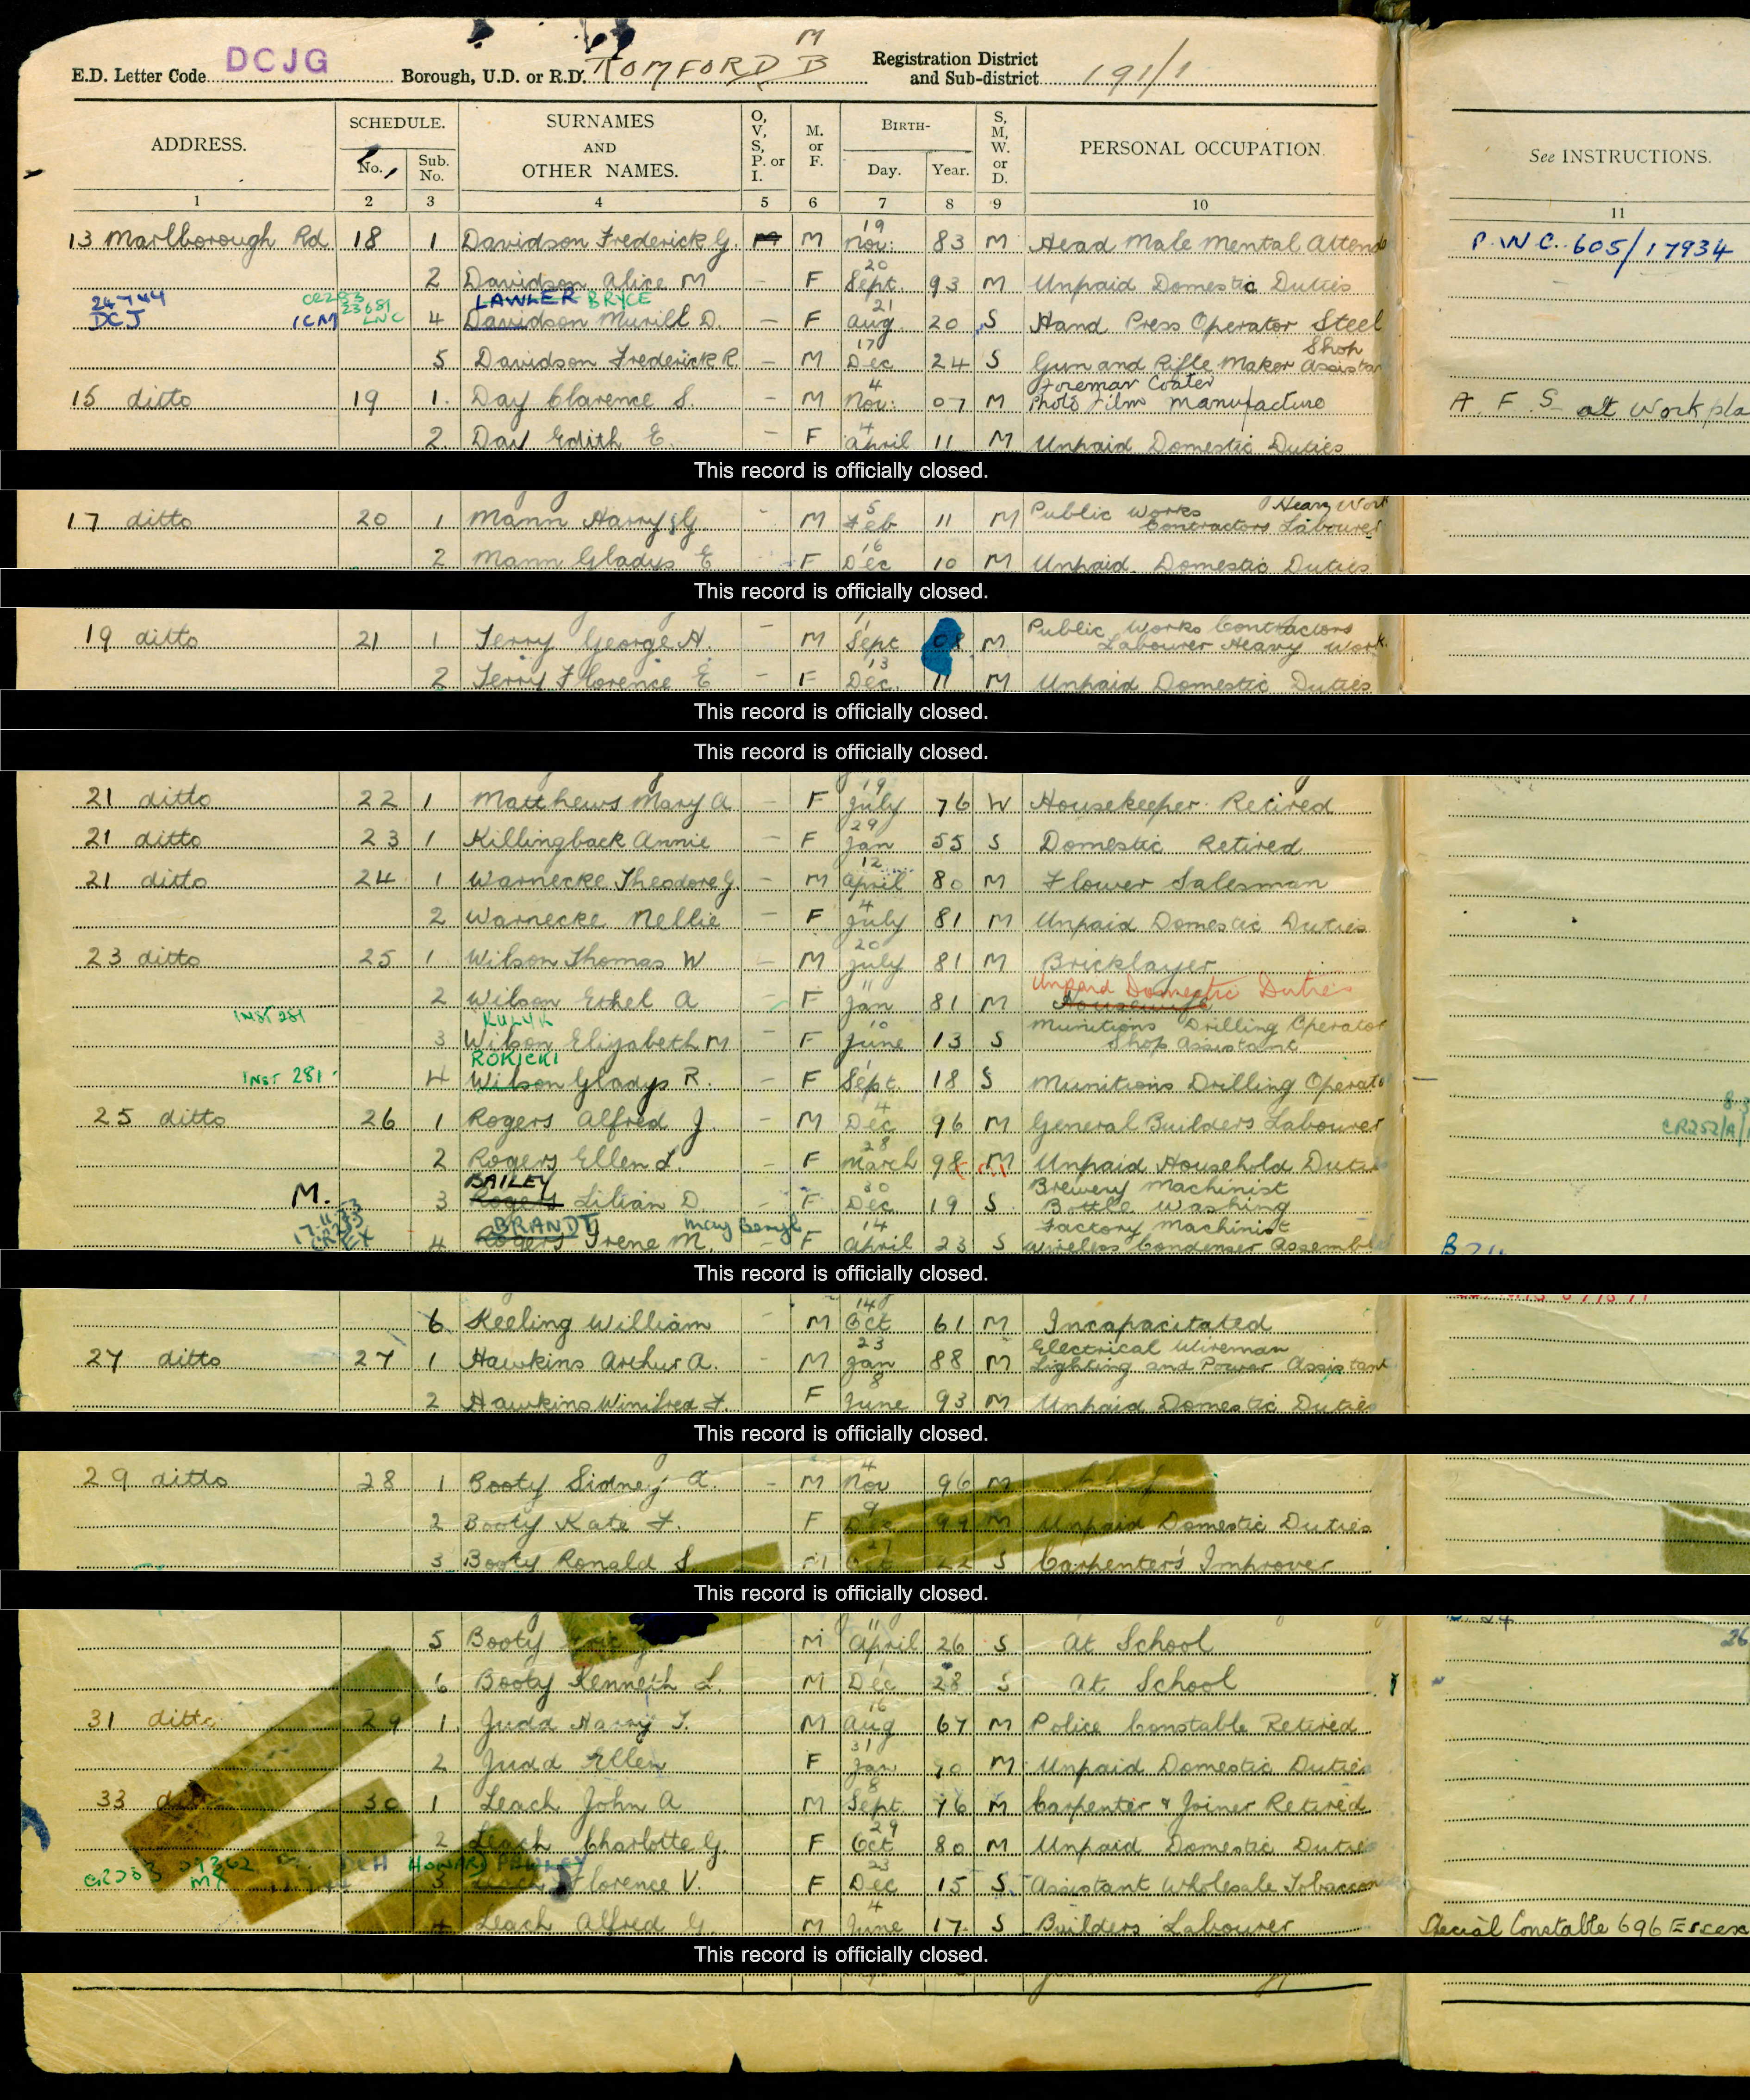 E.D. Letter Code DCJG Borough, U.D. or R.D. ROMFORD M B Registration District and Sub-district 191/1
ADDRESS. SCHEDULE. No. Sub. No. SURNAMES AND OTHER NAMES. O, V, S, P. or I. M. or F. BIRTH- Day. Year. S, M, W. or D. PERSONAL OCCUPATION. See INSTRUCTIONS.
1 2 3 4 5 6 7 8 9 10 11
13 Marlborough Rd 18 1 Davidson Frederick G. M 19 Nov: 83 M Head Male Mental Attend P.W.C. 605/17934
2 Davidson Alice M - F 20 Sept 93 M Unpaid Domestic Duties
LAWLER BRYCE
DCJ ICM LNC 4 Davidson Murill D. - F 21 Aug 20 S Hand Press Operator Steel
Shop
5 Davidson Frederick R. - M 17 Dec 24 S Gun and Rifle Maker Assista
Foreman Coater
15 ditto 19 1. Day Clarence S. - M 4 Nov: 07 M Photo Film Manufacture A. F. S at Work pla
2. Day Edith E. - F 4 April 11 M Unpaid Domestic Duties
This record is officially closed.
Heavy Work
17 ditto 20 1 Mann Harry G - M 5 Feb 11 M Public Works Contractors Labourer
2 Mann Gladys E F 16 Dec 10 M Unpaid Domestic Duties
This record is officially closed.
Public Works Contractors
19 ditto 21 1 Terry George H. - M Sept 08 M Labourer Heavy Work
2 Terry Florence E - F 13 Dec 11 M Unpaid Domestic Duties
This record is officially closed.
This record is officially closed.
21 ditto 22 1 Matthews Mary A - F 19 July 76 W Housekeeper Retired
21 ditto 23 1 Killingback Annie - F 29 Jan 55 S Domestic Retired
21 ditto 24 1 Warnecke Theodore G. - M 12 April 80 M Flower Salesman
2 Warnecke Nellie - F 4 July 81 M Unpaid Domestic Duties
23 ditto 25 1 Wilson Thomas W - M 20 July 81 M Bricklayer
Unpaid Domestic Duties
2 Wilson Ethel A - F 11 Jan 81 M Housewife
INST 281 KULYK Munitions Drilling Operator
3 Wilson Elizabeth M - F 10 June 13 S Shop Assistant
ROKICKI
INST 281 4 Wilson Gladys R. - F 1 Sept 18 S Munitions Drilling Operato
25 ditto 26 1 Rogers Alfred J. - M 4 Dec 96 M General Builders Labourer
2 Rogers Ellen L. - F 28 March 98 M Unpaid Household Duties
BAILEY Brewery Machinist
M. 3 Rogers Lilian D - F 30 Dec 19 S Bottle Washing
BRANDT May Beryl Factory Machinist
4 Rogers Irene M. - F 14 April 23 S Wireless Condenser Assembl
This record is officially closed.
6. Keeling William - M 14 Oct 61 M Incapacitated
Electrical Wireman
27 ditto 27 1 Hawkins Arthur A. - M 23 Jan 88 M Lighting and Power Assistant
2 Hawkins Winifred F. F 8 June 93 M Unpaid Domestic Duties
This record is officially closed.
29 ditto 28 1 Booty Sidney A. - M 4 Nov 96 M
2 Booty Kate F. F 9 Dec 97 M Unpaid Domestic Duties
3 Booty Ronald S. M 27 Oct 22 S Carpenter's Improver
This record is officially closed.
5 Booty Eric M 11 April 26 S At School 26
6 Booty Kenneth L. M 1 Dec 28 S At School
31 ditto 29 1. Judd Harry T. M 16 Aug 67 M Police Constable Retired
2 Judd Ellen F 31 Jan 70 M Unpaid Domestic Duties
33 ditto 30 1 Leach John A M 8 Sept 76 M Carpenter & Joiner Retired
2 Leach Charlotte G. F 29 Oct 80 M Unpaid Domestic Duties
HOWARD
3 Leach Florence V. F 23 Dec 15 S Assistant Wholesale Tobaccon
4 Leach Alfred G. M 4 June 17 S Builders Labourer Special Constable 696 Essex
This record is officially closed.